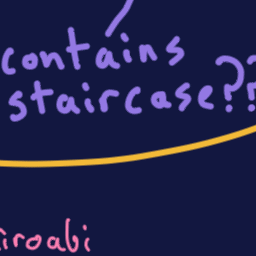 contains
staircase??
iroabi